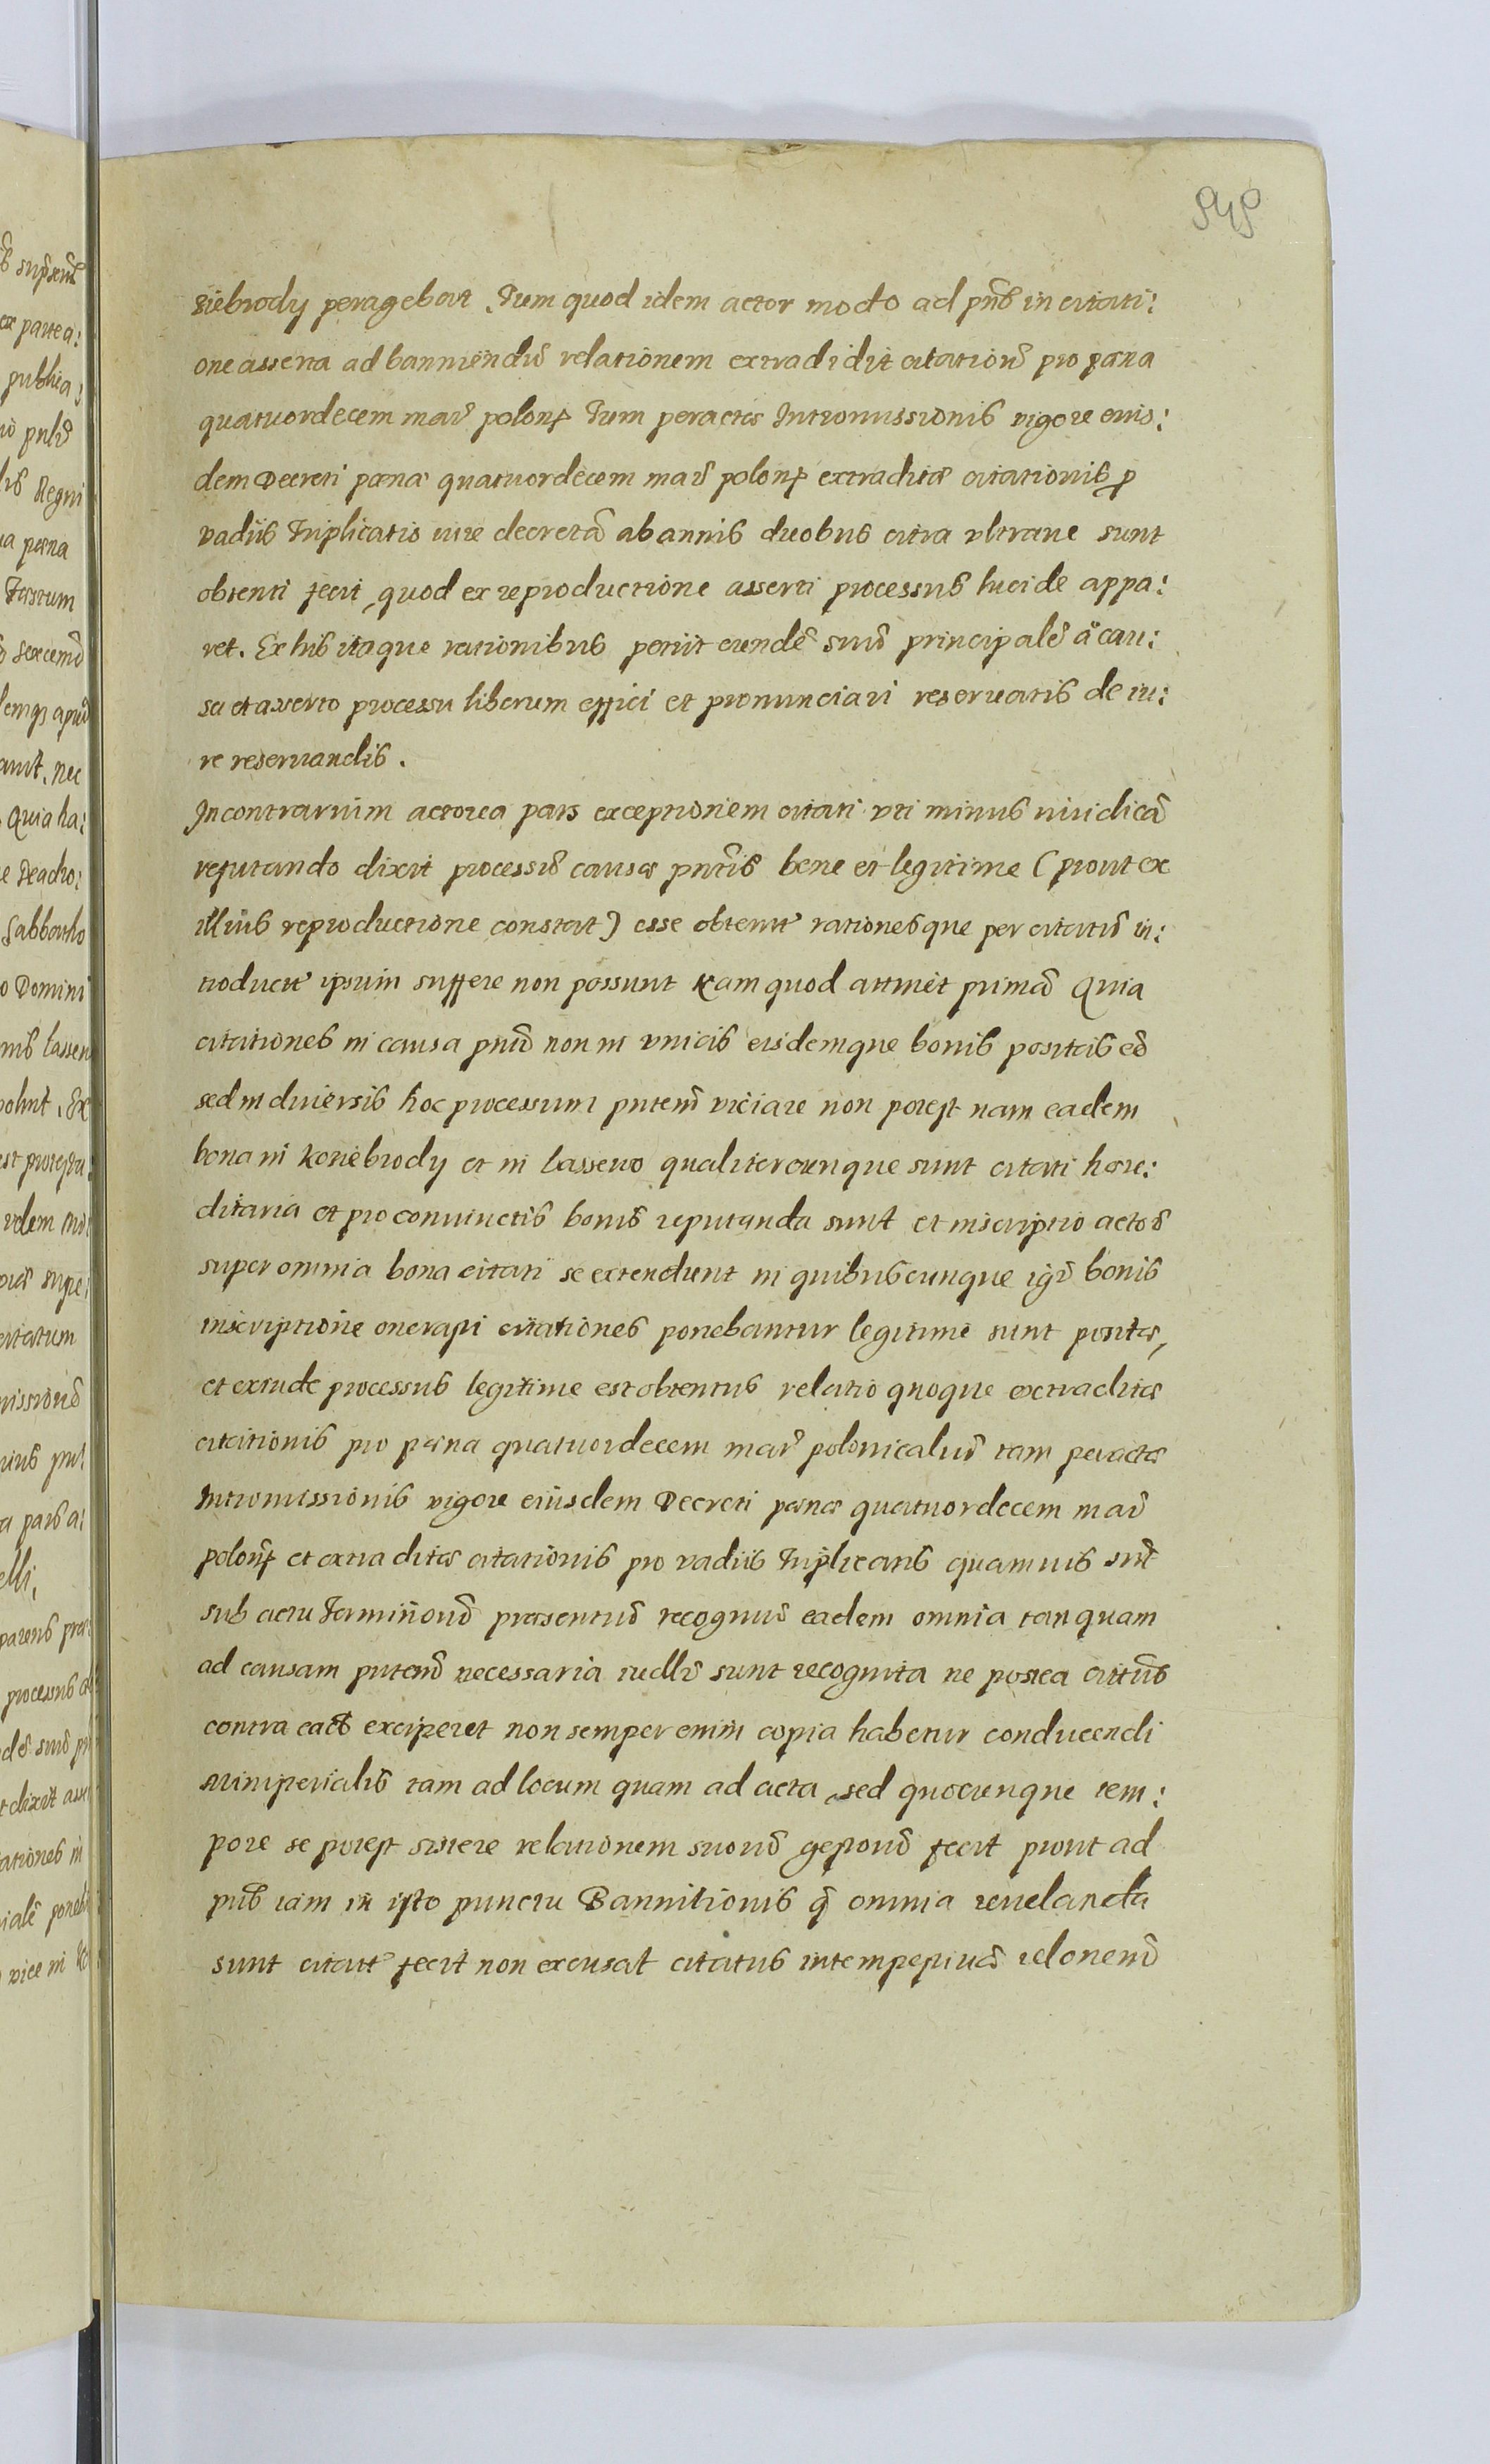 545
ziebrody peragebat. Tum quod idem actor modo ad pñs in citati:
one asserta ad banniendũ relationem extradidit citationũ pro pæna
quatuordecem mar̃ polonֿ Tum peractæ Intromissionis vigore eius:
dem Decreti pænæ quatuordecem mar̃ polonֿ extraditæ citationis p
vadiis Triplicatis iure decretã ab annis duobus citra vltraue sunt
obtenti fecit, quod ex reproductione asserti processus lucide appa:
ret. Ex his itaque rationibus petiit eundẽ suũ principalẽ à cau:
sa et asserto processu liberum effici et pronunciari reseruatis de iu:
re reseruandis.
In contrarium actorea pars exceptionem citati vti minus iuridicã
refutando dixit processũ causæ pñtis bene et legitime (prout ex
illius reproductione constat) esse obtent rationesque per citatũ in:
troduct ipsum suffere non possunt Nam quod attinet primã Quia
citationes in causa pñti non in vnicis eisdemque bonis positas eẽ
sed in diuersis hoc processum pñtem viciare non potest nam eadem
bona in Koniebrody et in Lassewo qualitercunque sunt citati hære:
ditaria et pro conuinctis bonis reputanda sunt et inscriptio actoris
super omnia bona citati se extendunt in quibuscunque igr̃ bonis
inscriptione onerasti citationes ponebantur legitime sunt positæ,
et exinde processus legitime est obtentus relatio quoque extraditæ
citationis pro pæna quatuordecem mar̃ polonicaliũ tam peractæ
Intromissionis vigore eiusdem Decreti pænæ quatuordecem mar̃
polonֿ et extraditæ citationis pro vadiis Triplicatis quamuis snt
sub actu Terminorũ præsentiũ recognit eadem omnia tanquam
ad causam pñtem necessaria iudlr̃ sunt recognita ne postea citatus
contra exciperet non semper enim copia habetur conducendi
Ministerialis tam ad locum quam ad acta, sed quocunque tem:
pore se potest sistere relationem suorũ gestorũ fecit prout ad
pñs iam in isto punctu Bannitionis q̃ omnia reuelanda
sunt citatr̃ fecit non excusat citatus intempestiuã relonem